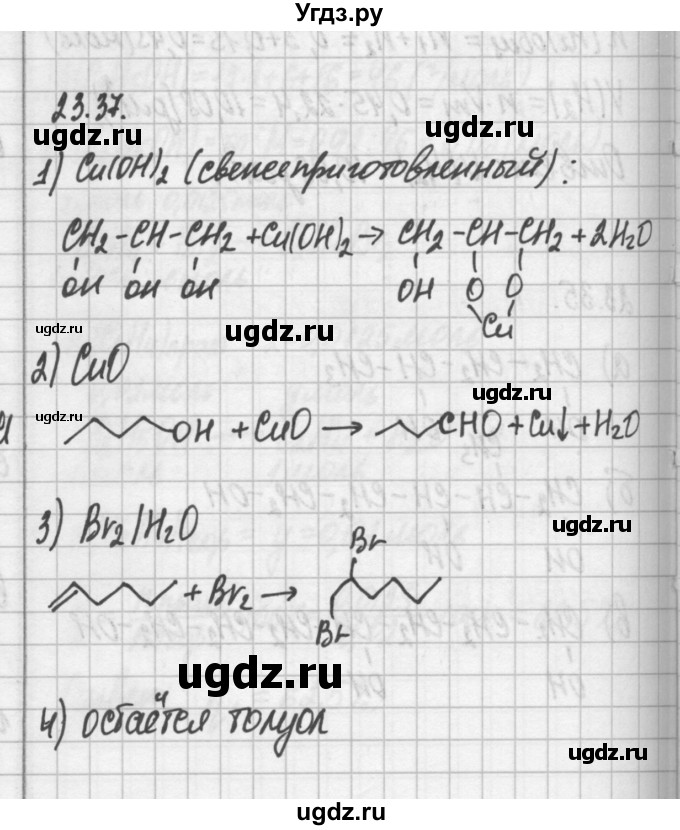 Угдз.ру
23.37.
ugdz.ru ugdz.ru
1) Cu(OH)2 (свежеприготовленный):
CH2-CH-CH2 + Cu(OH)2 → CH2-CH-CH2 + 2H2O
OH OH OH OH O O
Cu
ugdz.ru ugdz.ru
2) CuO
ugdz.ru
ugdz.ru
OH + CuO → CHO + Cu↓ + H2O
3) Br2/H2O
ugdz.ru
Br
+ Br2 →
Br
ugdz.ru
4) остаётся толуол
ugdz.ru
ugdz.ru